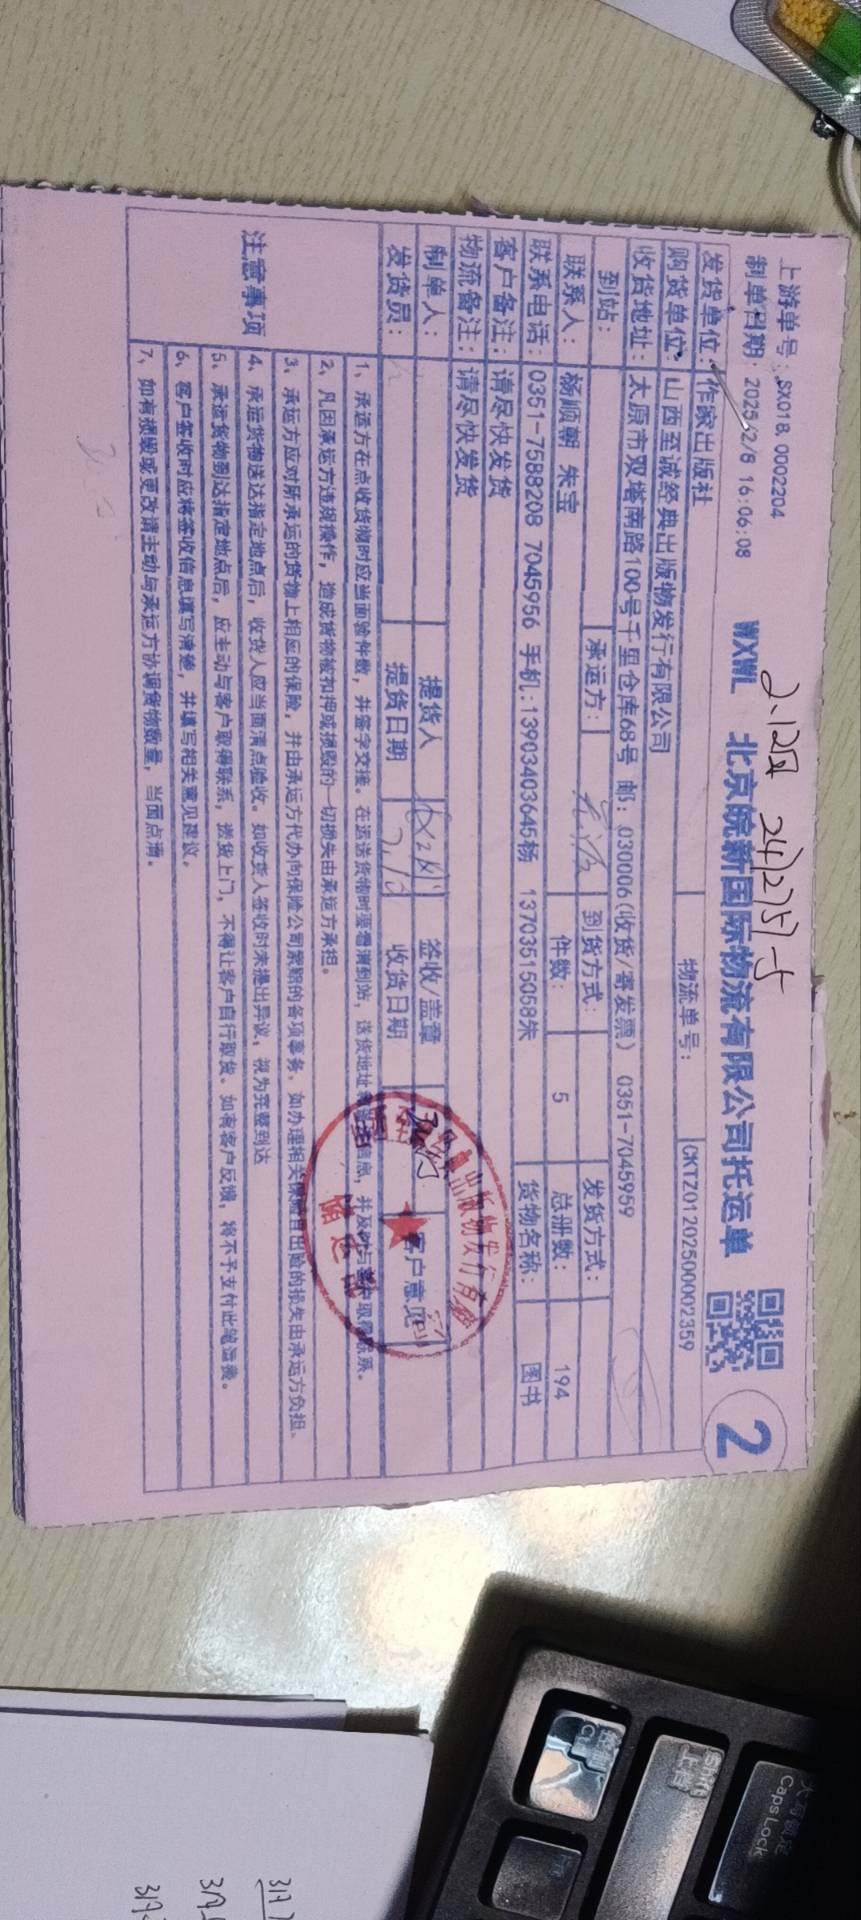 上游单号：SX01B.0002204
制单日期：2025/2/8 16:06:08
WXWL 北京皖新国际物流有限公司托运单
2
发货单位： 作家出版社
物流单号： CKTZ01202500002359
购货单位： 山西至诚经典出版物发行有限公司
收货地址： 太原市双塔南路100号千里仓库68号 邮：030006(收货/寄发票) 0351-7045959
到站： 承运方： 到货方式： 发货方式：
联系人： 杨顺朝 朱宝 件数： 5 总册数： 194
联系电话： 0351-7588208 7045956 手机:13903403645杨 13703515058朱 货物名称： 图书
客户备注： 请尽快发货
物流备注： 请尽快发货
制单人： 提货人 签收/盖章 客户意见
发货员： 提货日期 收货日期
注意事项
1、承运方在点收货物时应当面验件数，并签字交接。在运送货物时要看清到站，送货地址 信息，并及时与 取得联系。
2、凡因承运方违规操作，造成货物被扣押或损毁的一切损失由承运方承担。
3、承运方应对所承运的货物上相应的保险，并由承运方代办向保险公司索赔的各项事务。如办理相关保险且出险的损失由承运方负担。
4、承运货物送达指定地点后，收货人应当面清点验收。如收货人签收时未提出异议，视为完整到达
5、承运货物到达指定地点后，应主动与客户取得联系，送货上门，不得让客户自行取货、如有客户反馈，将不予支付此笔运费。
6、客户签收时应将签收信息填写清楚，并填写相关意见建议。
7、如有损毁或更改请主动与承运方协调货物数量，当面点清。
出版物发行有
储运部
大写锁定
CapsLock
Shift
上档
317